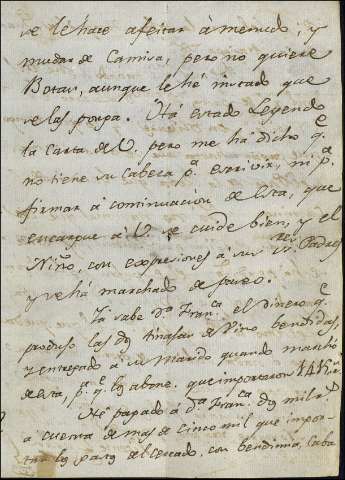 se le hace afeitar à menudo, y
mudar de Camisa, pero no quiere
Botas, aunque le hé instado que
se las ponga. Há estado Leyendo
la Carta de V. pero me há dicho q.e
no tiene su Cabeza p.a escrivir, ni p.a
firmar à continuacion de esta, que
encargue à V. se cuide bien, y el
Niño, con expresiones à sus Padres
y se há marchado de paseo.
Yá sabe D.a Fran.ca el Dinero q.e
produjo las dos tinajas de Vino bendidas,
y entregado à su Marido quando marchó
de esta, p.a q.e los abone. que importaron
Hé pagado à D.a Fran.ca dos mil r.s
à cuenta de mas de cinco mil que impor-
tan los gastos del cercado, con bendimia, Caba